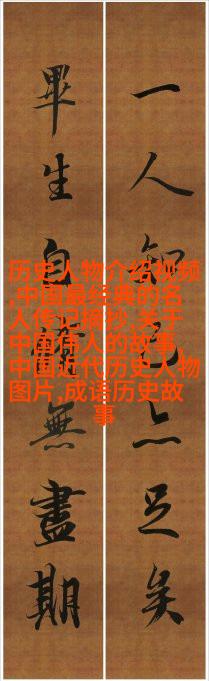 一人知己亦足矣
畢生自無盡期
历史人物介绍视频
,中国最经典的名
人传记摘抄,关于
中国伟人的故事,
中国近代历史人物
图片,成语历史故
事